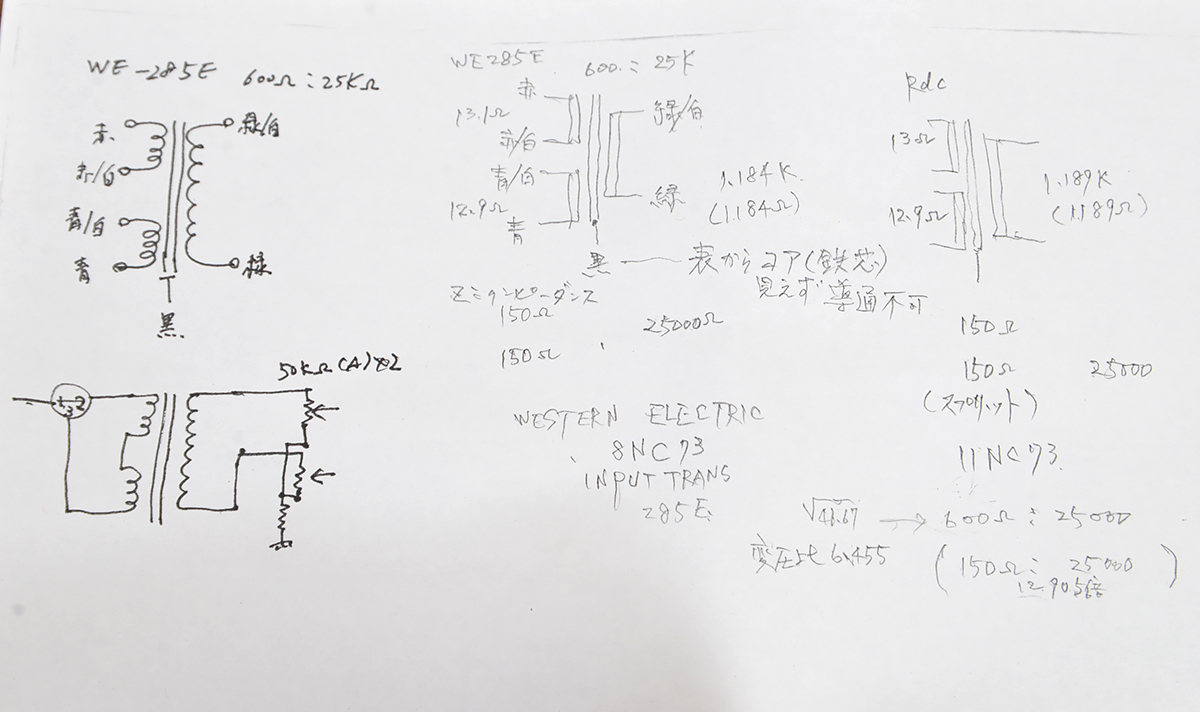 WE-285E 600Ω:25KΩ
赤
赤/白
青/白
青
緑/白
緑
黒
50KΩ(A)×2
WE285E 600:25K
赤
13.1Ω
赤/白
青/白
12.9Ω
青
緑/白
緑
1.184K
(1.184Ω)
黒 — 表からコア(鉄芯)
見えず導通不可
Z:インピーダンス
150Ω
25000Ω
150Ω
WESTERN ELECTRIC
8NC73
INPUT TRANS
285E
Rdc
13Ω
12.9Ω
1.189K
(1.189Ω)
150Ω
150Ω 25000
(スプリット)
11NC73
√41.67 → 600Ω:25000
変圧比 6.455
(150Ω:25000)
12.905倍